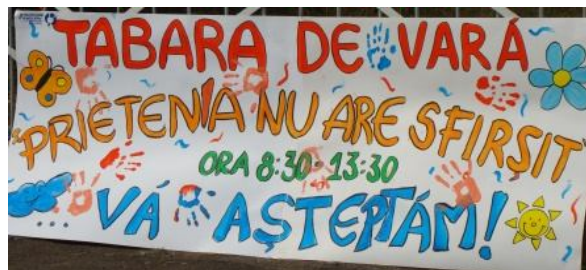 TABARA DE VARÁ
"PRIETENIA NU ARE SFIRSIT"
ORA 8:30-13:30
VÁ AŞTEPTĂM!